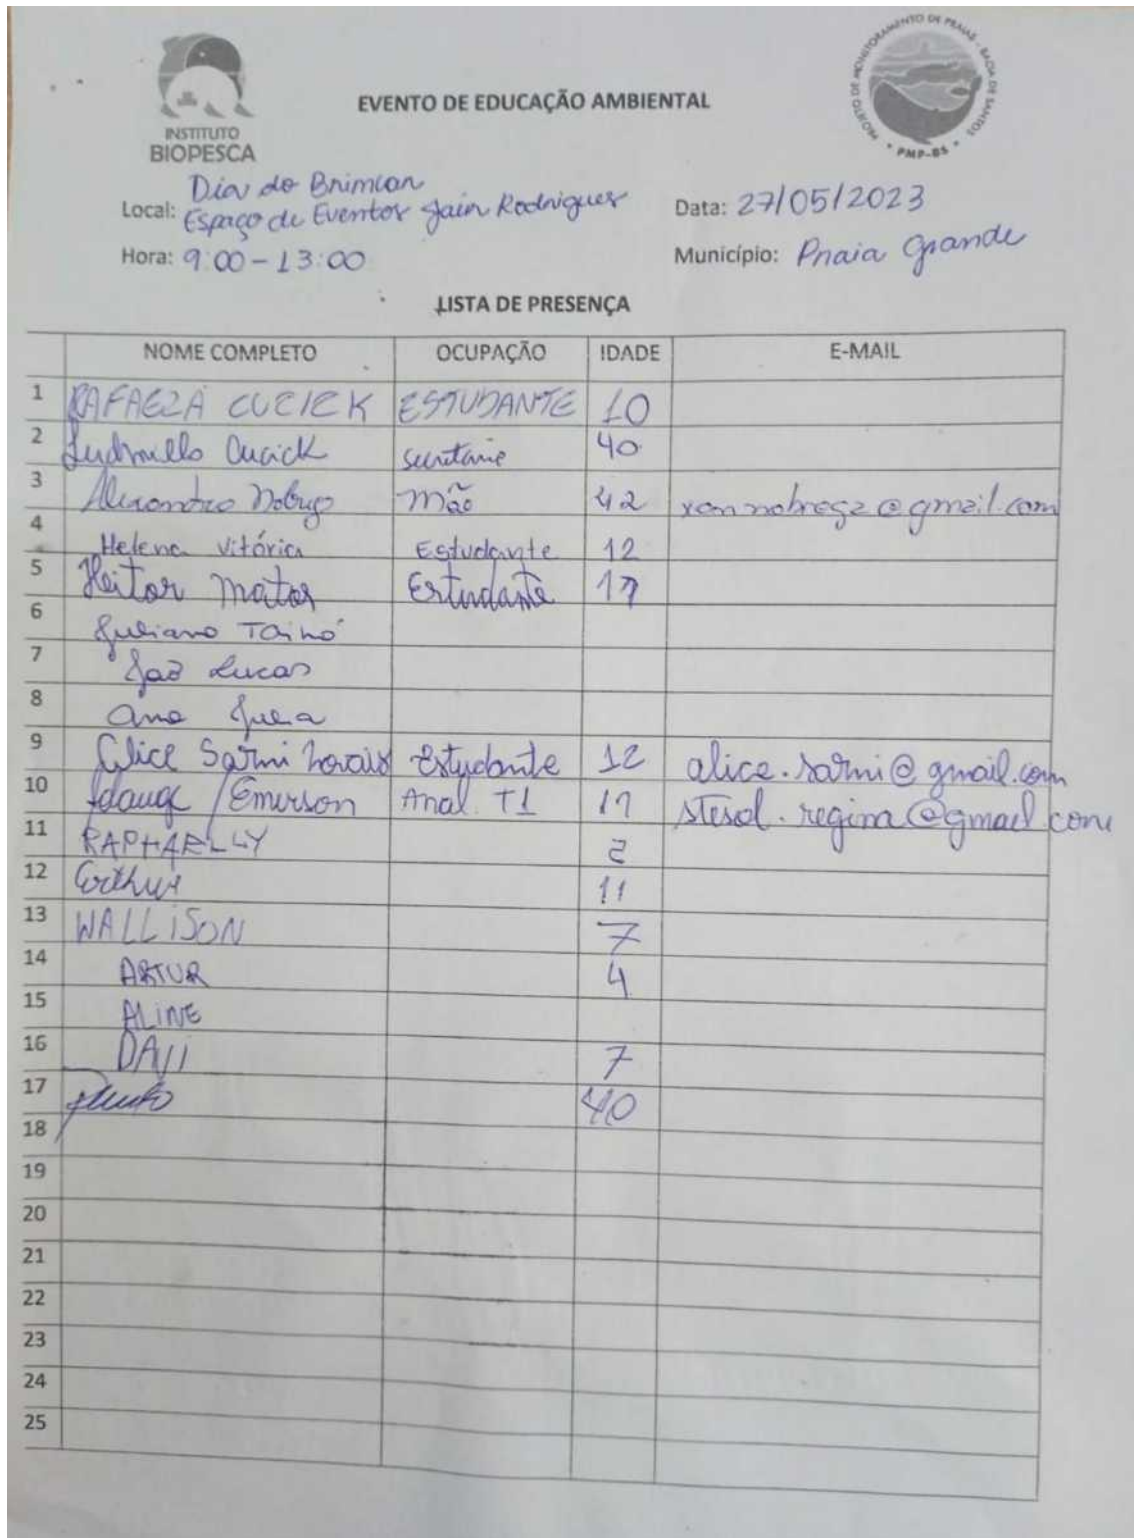 INSTITUTO
BIOPESCA
EVENTO DE EDUCAÇÃO AMBIENTAL
PROJETO DE MONITORAMENTO DE PRAIAS - BACIA DE SANTOS
PMP-BS
Dia do Brincar
Local: Espaço de Eventos Jair Rodrigues Data: 27/05/2023
Hora: 9:00 - 13:00 Município: Praia Grande
LISTA DE PRESENÇA
NOME COMPLETO OCUPAÇÃO IDADE E-MAIL
1 RAFAELA CUCICK ESTUDANTE 10
2 Ludmilla Cucick 40
3 42 xannobrega@gmail.com
4 Helena Vitória Estudante 12
5 Heitor Matos Estudante 17
6 Juliano
7 Lucas
8 Ana
9 Alice Sarmi Estudante 12 alice.sarmi@gmail.com
10 / Emerson Anal. TI stesol.regina@gmail.com
11 RAPHAELLY 2
12 Arthur 11
13 WALLISON 7
14 ARTUR 4
15 ALINE
16 7
17 40
18
19
20
21
22
23
24
25